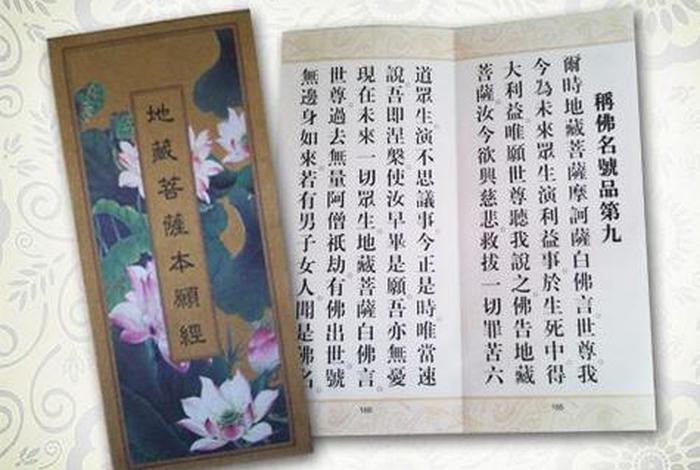 地藏菩薩本願經
稱佛名號品第九
爾時地藏菩薩摩訶薩白佛言。世尊。我
今為未來眾生演利益事。於生死中得
大利益。唯願世尊聽我說之。佛告地藏
菩薩。汝今欲興慈悲。救拔一切罪苦六
165
道眾生。演不思議事。今正是時。唯當速
說。吾即涅槃。使汝早畢是願。吾亦無憂
現在未來一切眾生。地藏菩薩白佛言。
世尊。過去無量阿僧祇劫。有佛出世。號
無邊身如來。若有男子女人。聞是佛名。
166